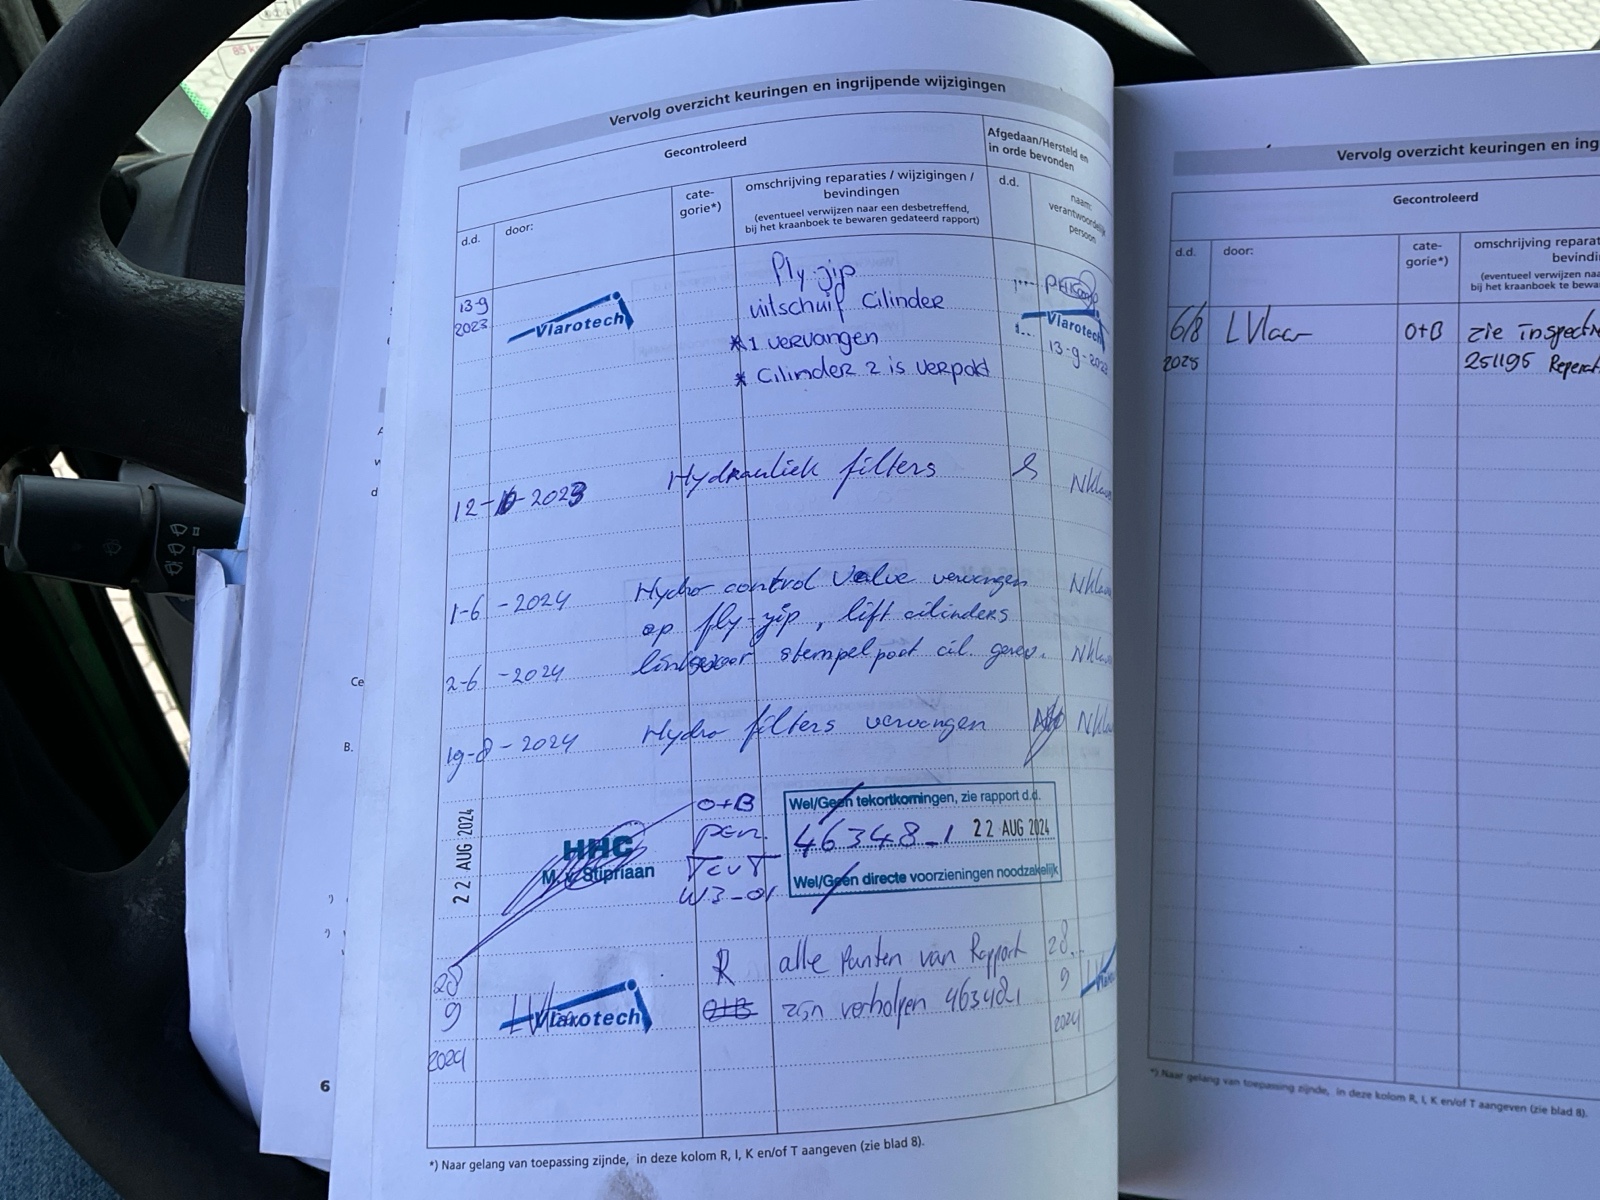 85 k
Vervolg overzicht keuringen en ingrijpende wijzigingen
Gecontroleerd
Afgedaan/Hersteld en
in orde bevonden
d.d.
door:
cate-
gorie*)
omschrijving reparaties / wijzigingen /
bevindingen
(eventueel verwijzen naar een desbetreffend,
bij het kraanboek te bewaren gedateerd rapport)
d.d.
naam:
verantwoordelijk
persoon
13-9
2023
Vlarotech
Fly-jip
uitschuif Cilinder
* 1 vervangen
* Cilinder 2 is verpakt
Vlarotech
13-9-2023
12-10-2023
Hydrauliek filters
1-6-2024
Hydro control Valve vervangen
op fly-yip, lift cilinders
2-6-2024
stempelpoot cil. gerev.
19-8-2024
Hydro filters vervangen
22 AUG 2024
HHC
M. v. Stipriaan
O+B
TCVT
W3-01
Wel/Geen tekortkomingen, zie rapport d.d.
46348-1 22 AUG 2024
Wel/Geen directe voorzieningen noodzakelijk
28
9
2024
Vlarotech
R
O+B
alle Punten van Rapport
zijn verholpen 46348-1
28
9
2024
*) Naar gelang van toepassing zijnde, in deze kolom R, I, K en/of T aangeven (zie blad 8).
6
Ce
B.
Vervolg overzicht keuringen en ing
Gecontroleerd
d.d.
door:
cate-
gorie*)
omschrijving reparat
bevindi
(eventueel verwijzen naa
bij het kraanboek te bewa
6/8
2025
L Vlaar
O+B
zie inspect
251195 Reperat
*) Naar gelang van toepassing zijnde, in deze kolom R, I, K en/of T aangeven (zie blad 8).